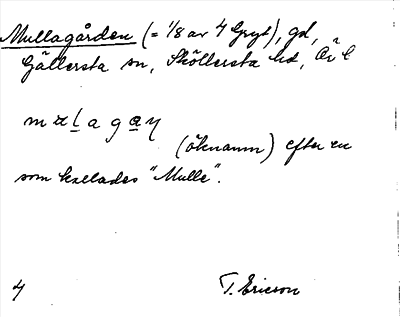 Mullagården (= 1/8 av 4 Gryt), gd,
Gällersta sn, Sköllersta hd, Ör l
m u l a g a η
(öknamn) efter en
som kallades "Mulle".
4 T. Ericson